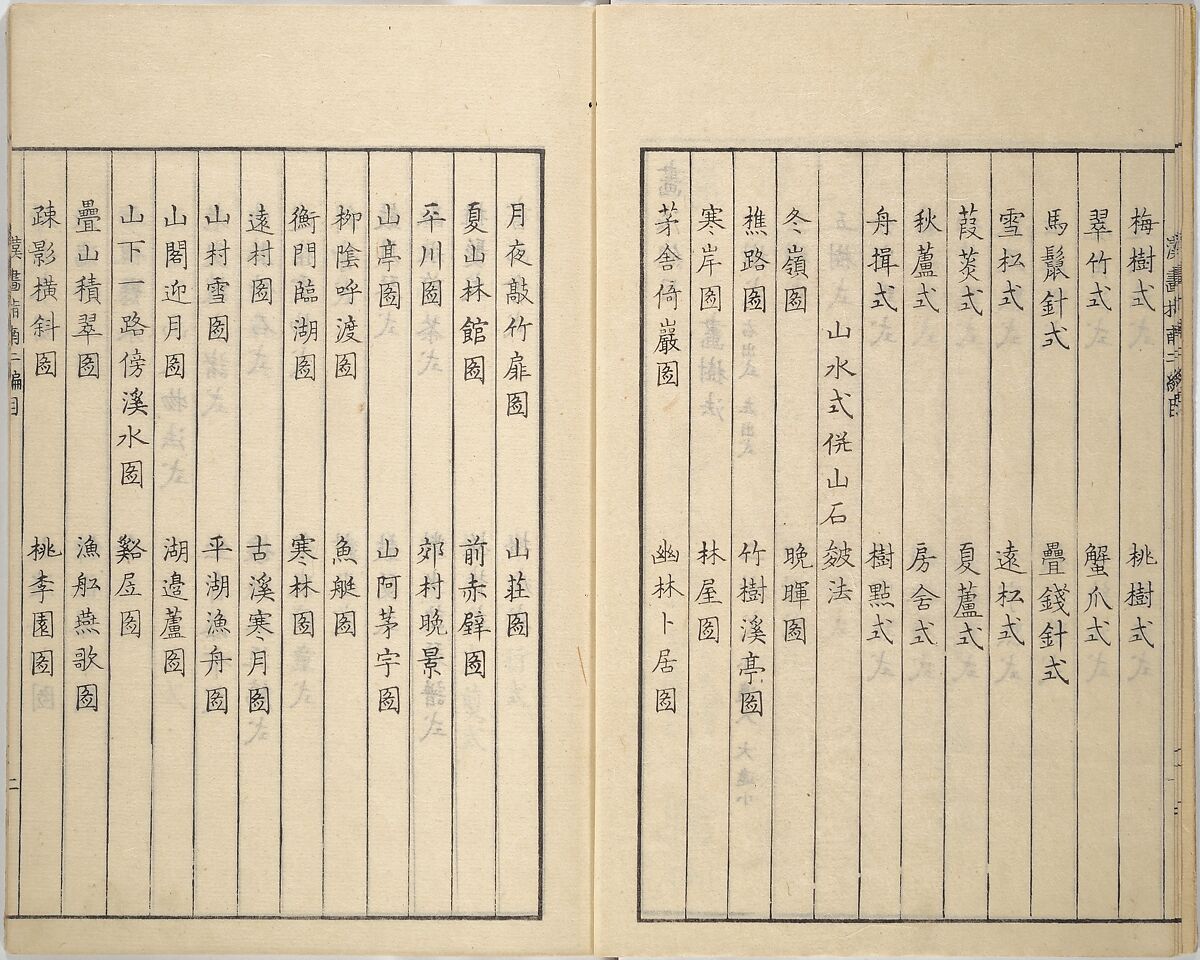 梅樹式 桃樹式
翠竹式 蟹爪式
馬鬣針式 疊錢針式
雪松式 遠松式
葭菼式 夏蘆式
秋蘆式 房舍式
舟揖式 樹點式
山水式併山石皴法
冬嶺圖 晩暉圖
樵路圖 竹樹溪亭圖
寒岸圖 林屋圖
茅舍倚巖圖 幽林卜居圖
月夜敲竹扉圖 山莊圖
夏山林館圖 前赤壁圖
平川圖 郊村晩景
山亭圖 山阿茅宇圖
柳陰呼渡圖 魚艇圖
衡門臨湖圖 寒林圖
遠村圖 古溪寒月圖
山村雪圖 平湖漁舟圖
山閣迎月圖 湖邉蘆圖
山下一路傍溪水圖 谿居圖
疊山積翠圖 漁舩燕歌圖
疎影横斜圖 桃李園圖
漢畫指南二編目 二